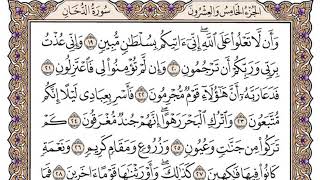 الجزء الخامس والعشرون سورة الدخان
وَأَن لَّا تَعْلُوا۟ عَلَى ٱللَّهِ ۖ إِنِّىٓ ءَاتِيكُم بِسُلْطَـٰنٍ مُّبِينٍ ١٩ وَإِنِّى عُذْتُ
بِرَبِّى وَرَبِّكُمْ أَن تَرْجُمُونِ ٢٠ وَإِن لَّمْ تُؤْمِنُوا۟ لِى فَٱعْتَزِلُونِ ٢١
فَدَعَا رَبَّهُۥٓ أَنَّ هَـٰٓؤُلَآءِ قَوْمٌ مُّجْرِمُونَ ٢٢ فَأَسْرِ بِعِبَادِى لَيْلًا إِنَّكُم
مُّتَّبَعُونَ ٢٣ وَٱتْرُكِ ٱلْبَحْرَ رَهْوًا ۖ إِنَّهُمْ جُندٌ مُّغْرَقُونَ ٢٤ كَمْ
تَرَكُوا۟ مِن جَنَّـٰتٍ وَعُيُونٍ ٢٥ وَزُرُوعٍ وَمَقَامٍ كَرِيمٍ ٢٦ وَنَعْمَةٍ
كَانُوا۟ فِيهَا فَـٰكِهِينَ ٢٧ كَذَٰلِكَ ۖ وَأَوْرَثْنَـٰهَا قَوْمًا ءَاخَرِينَ ٢٨